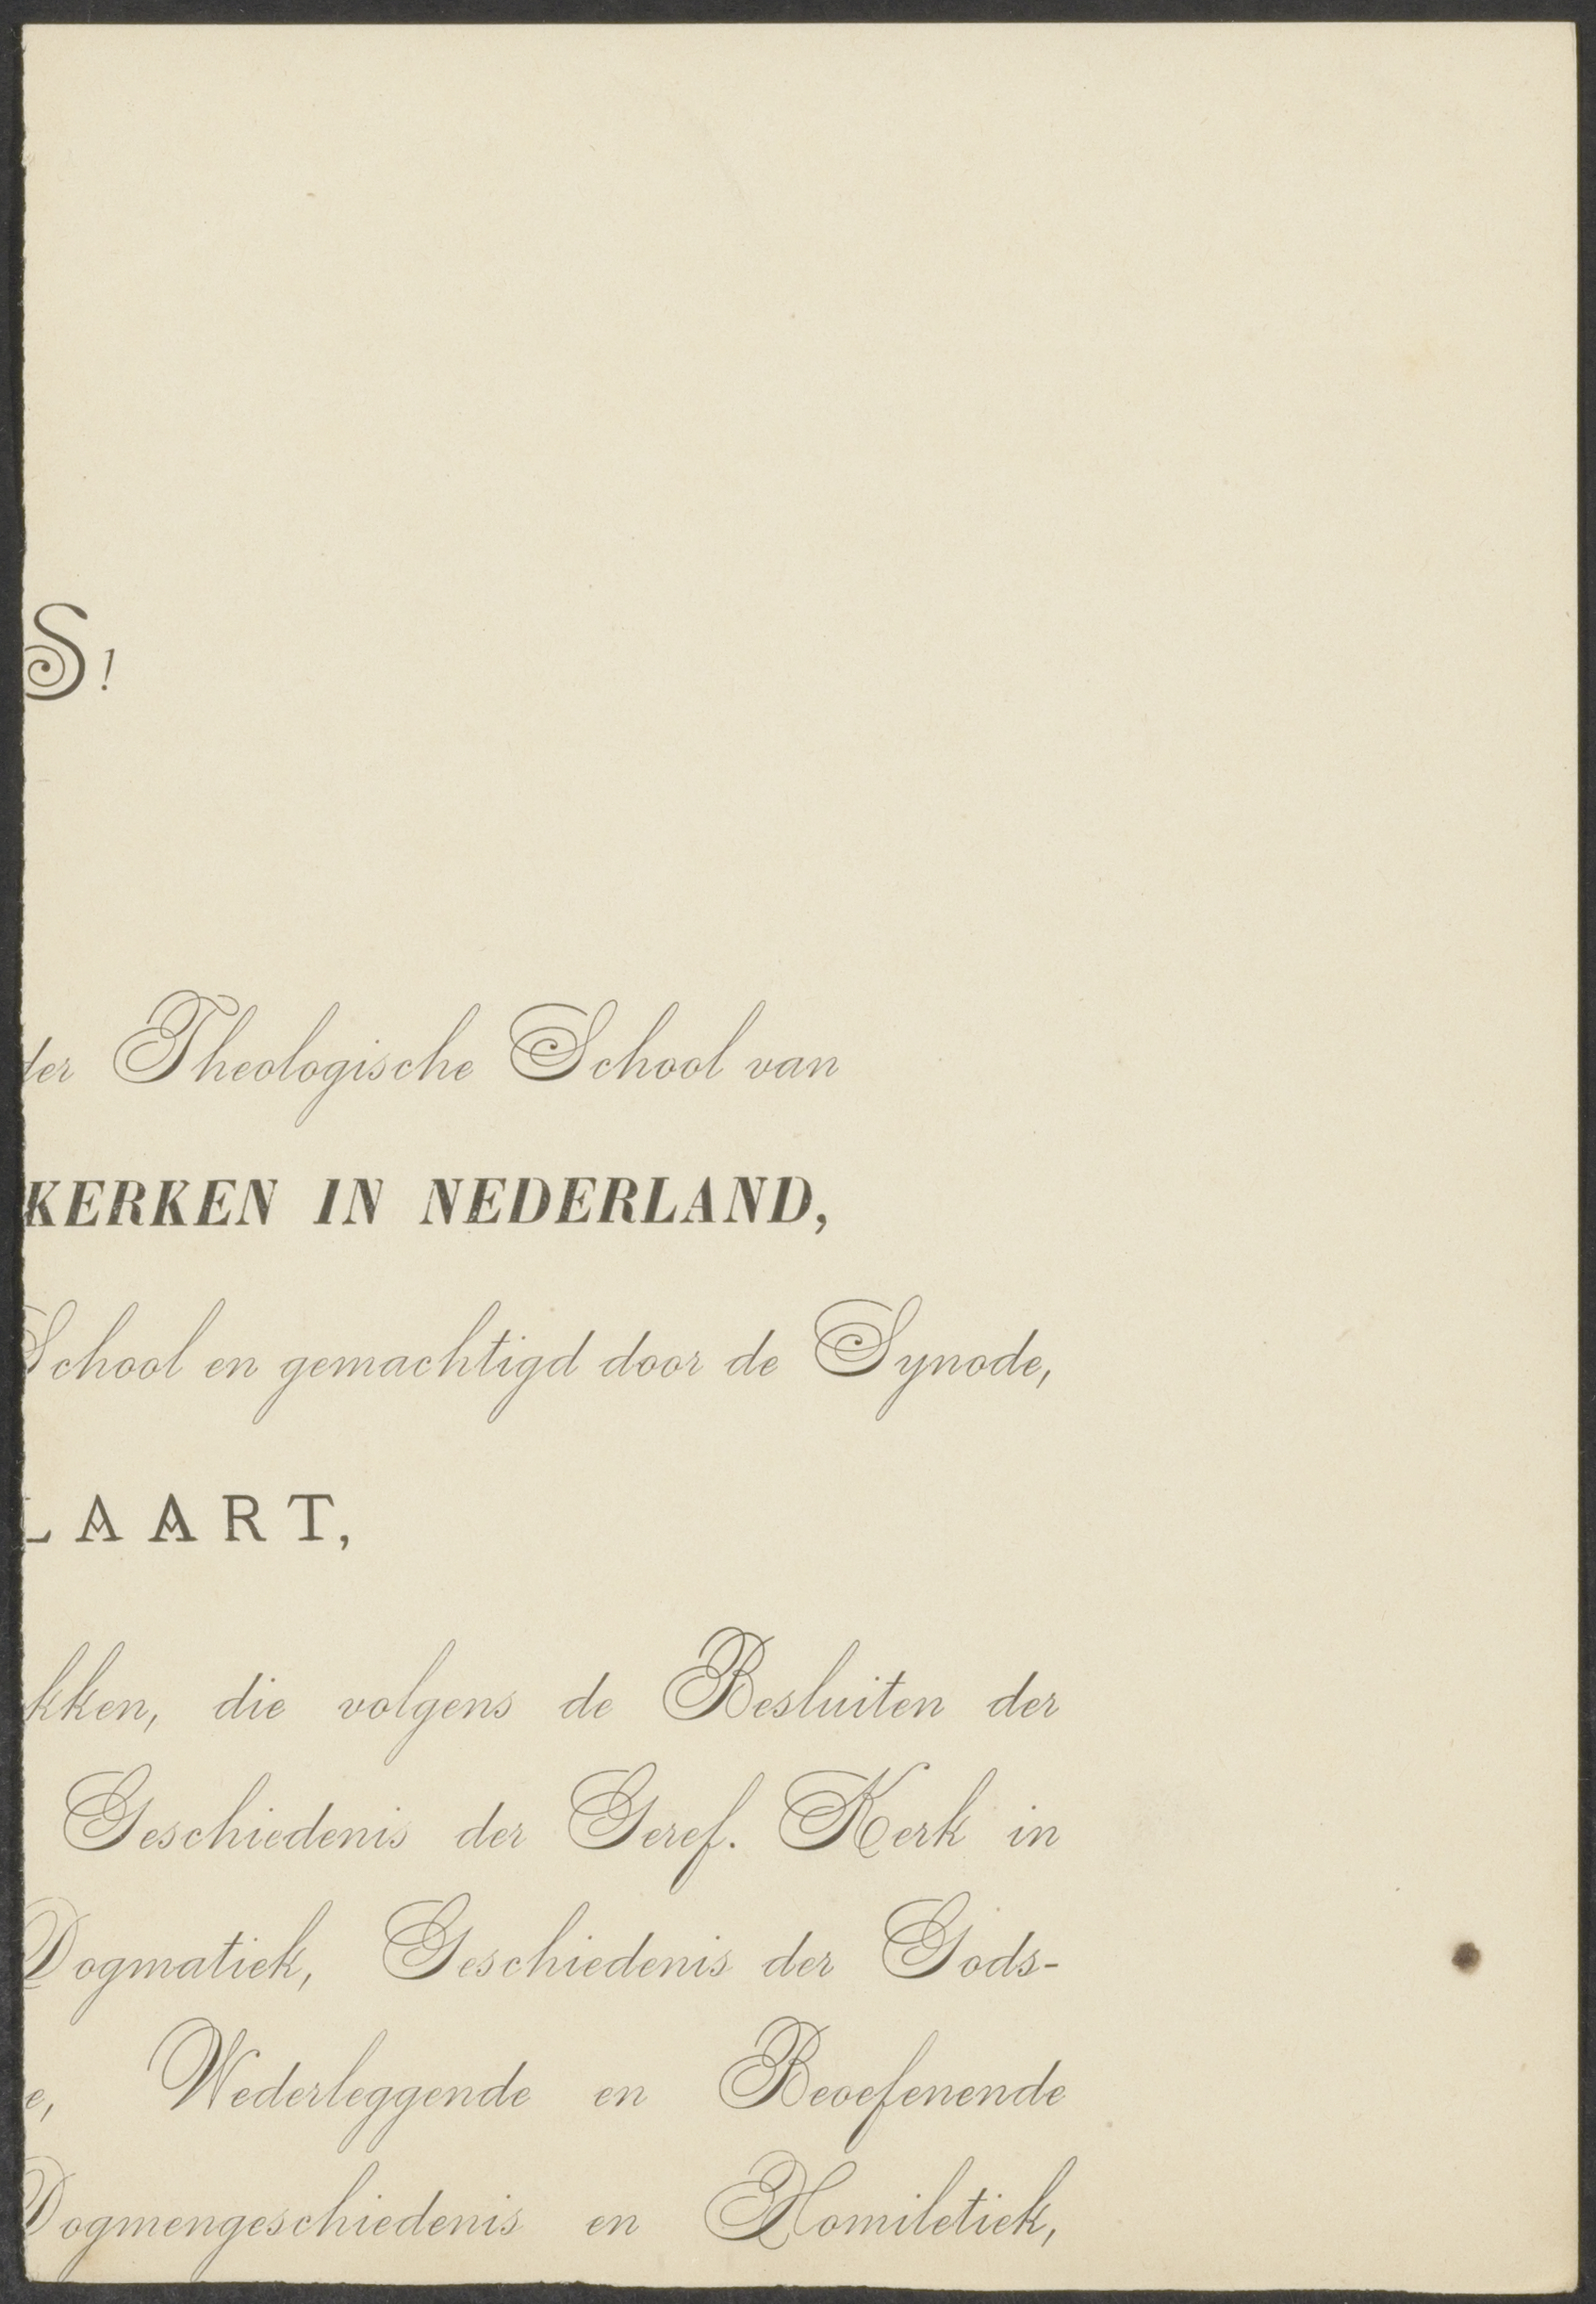 S!
der Theologische School van
KERKEN IN NEDERLAND,
School en gemachtigd door de Synode,
LAART,
kken, die volgens de Besluiten der
Geschiedenis der Geref. Kerk in
Dogmatiek, Geschiedenis der Gods-
e, Wederleggende en Beoefenende
Dogmengeschiedenis en Homiletiek,